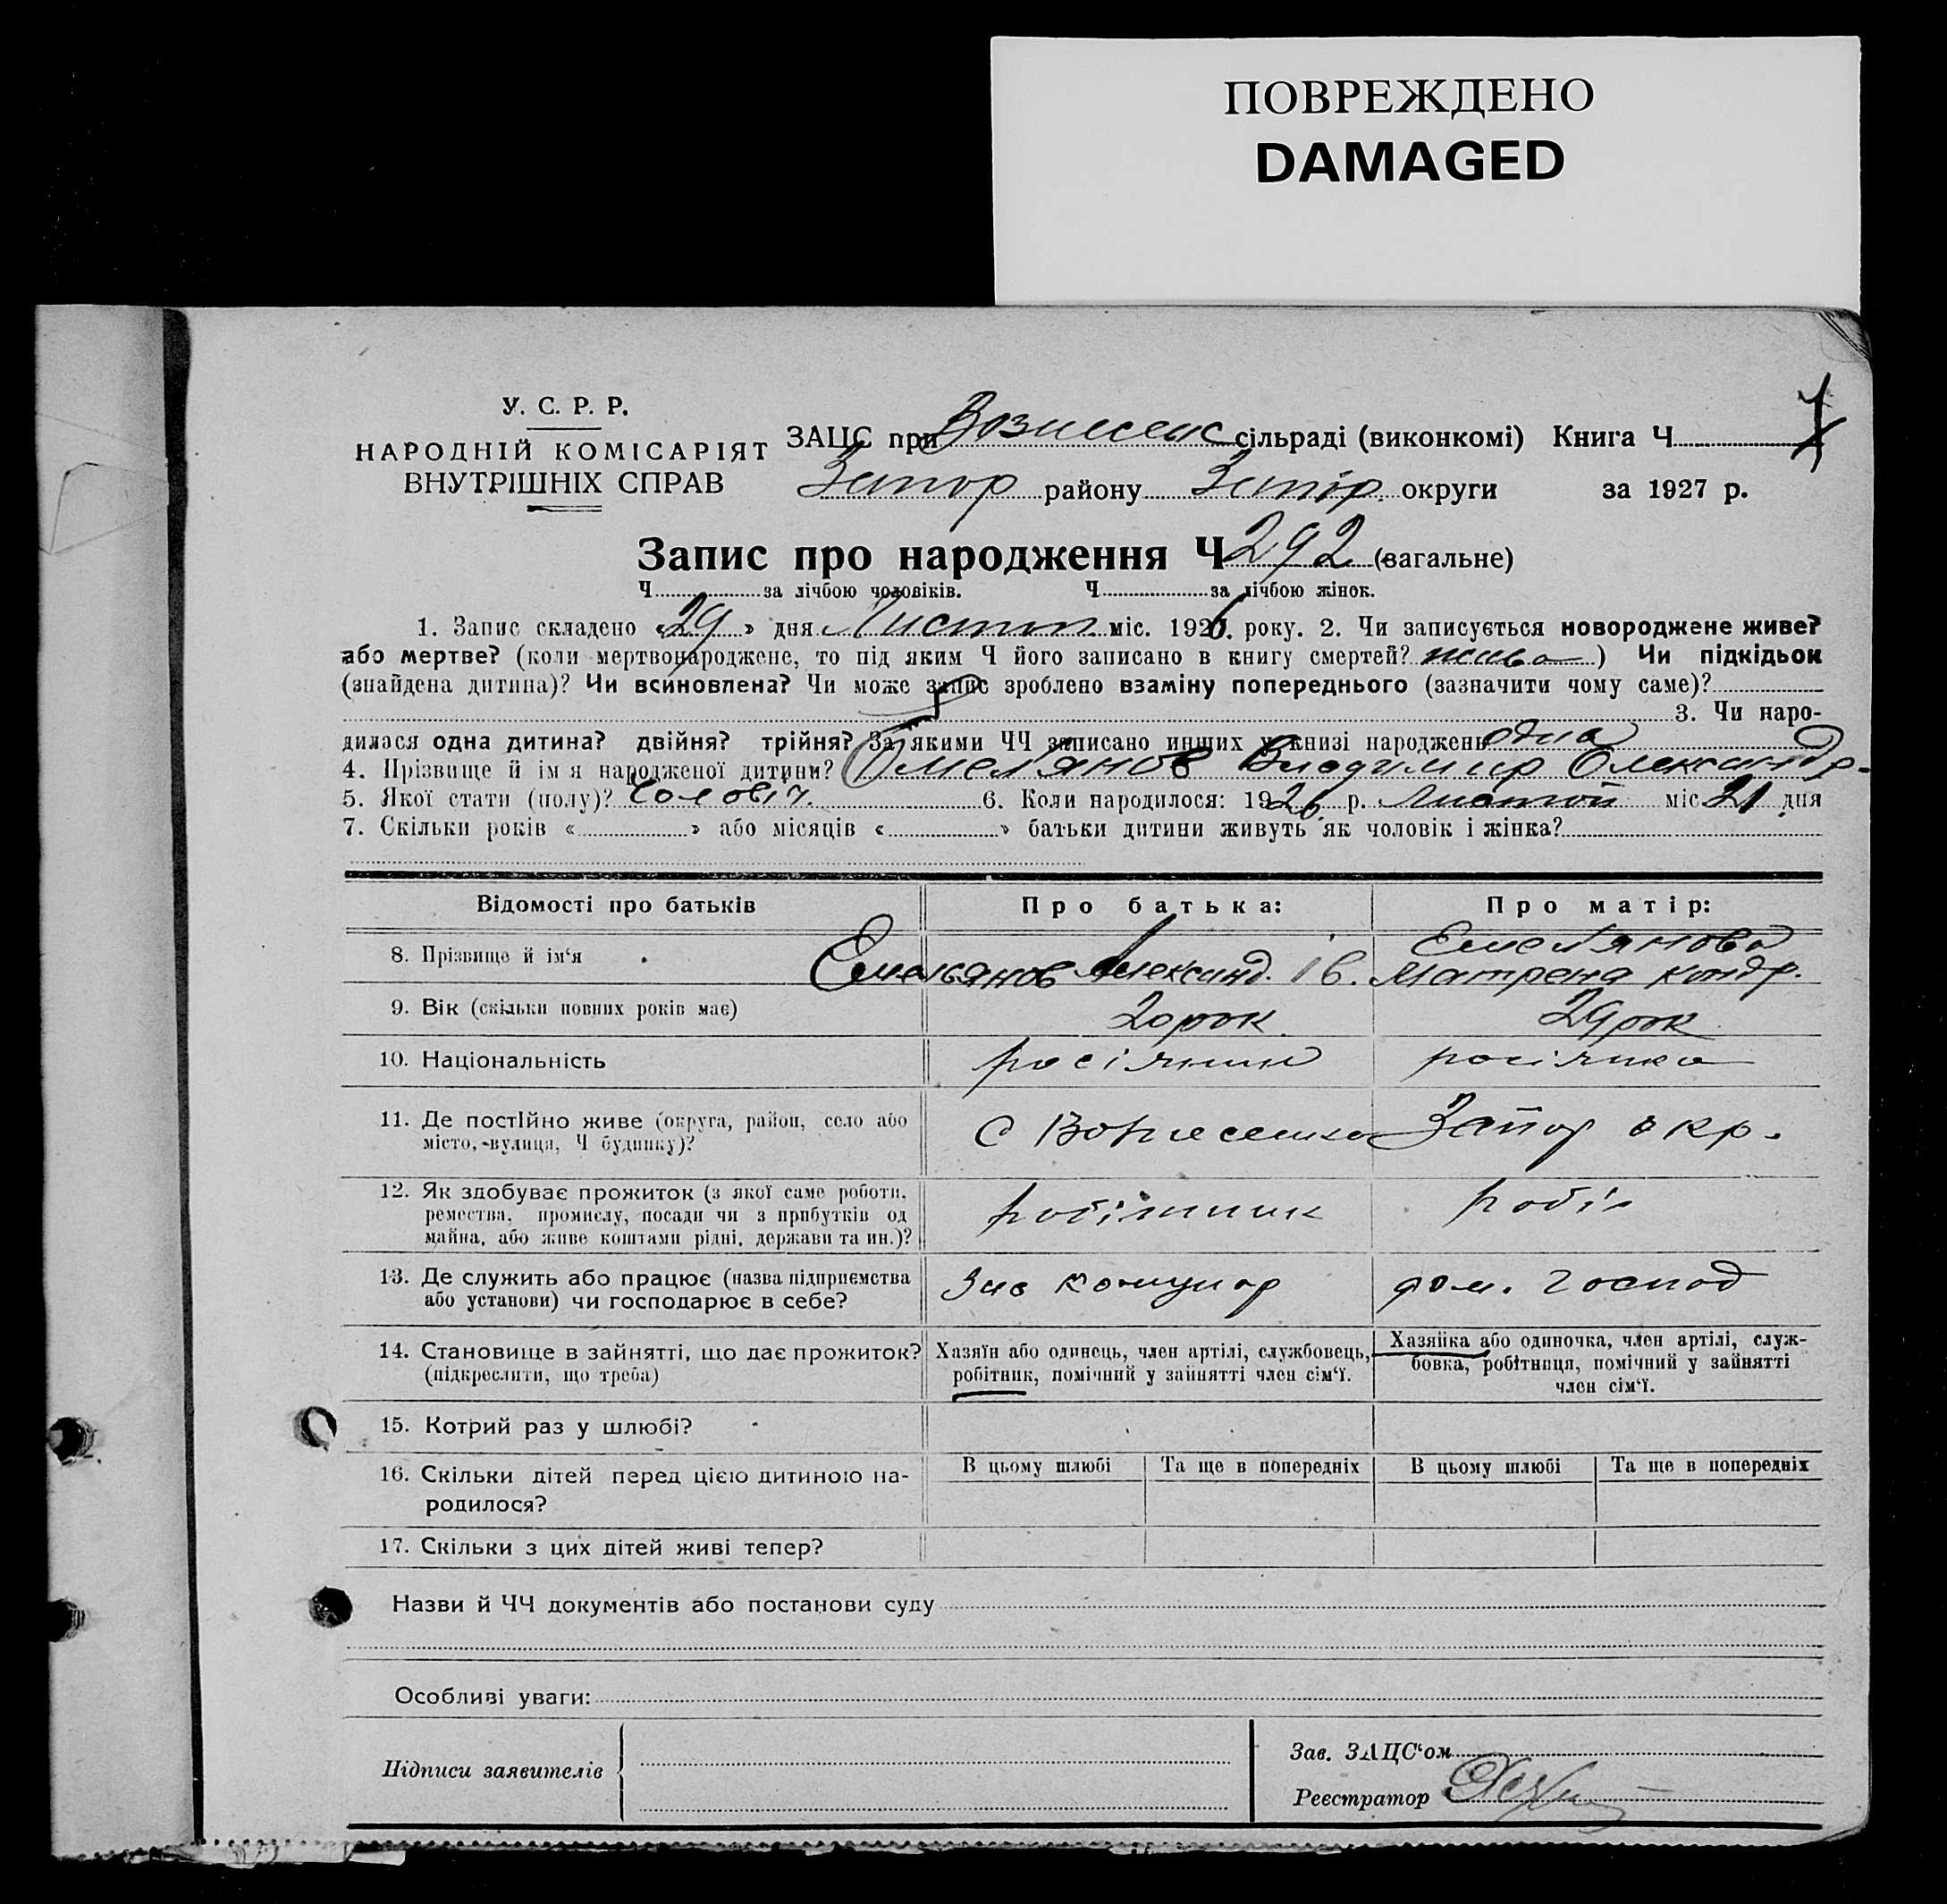 ПОВРЕЖДЕНО
DAMAGED
У. С. Р. Р.
НАРОДНІЙ КОМІСАРІЯТ
ВНУТРІШНІХ СПРАВ
ЗАЦС при Вознесенс сільраді (виконкомі) Книга Ч
Запор району Запор. округи за 1927 р.
Запис про народження Ч 292 (вагальне)
Ч за лічбою чоловіків. Ч за лічбою жінок.
1. Запис складено «29» дня Листоп міс. 1926. року. 2. Чи записується новороджене живе?
або мертве? (коли мертвонароджене, то під яким Ч його записано в книгу смертей? жива) Чи підкідьок
(знайдена дитина)? Чи всиновлена? Чи може запис зроблено взаміну попереднього (зазначити чому саме)?
3. Чи наро-
дилася одна дитина? двійня? трійня? За якими ЧЧ записано инших у книзі народжень одна
4. Прізвище й ім я народженої дитини? Омельянов Владимир Олександр.
5. Якої стати (полу)? Чоловіч. 6. Коли народилося: 1926 р. Листоп міс 21 дня
7. Скільки років « » або місяців « » батьки дитини живуть як чоловік і жінка?
Відомості про батьків Про батька: Про матір:
8. Прізвище й ім‘я Емельянов Александ. Ів. Емельянова Матрена Кондр.
9. Вік (скільки повних років має) 20 рок. 29 рок
10. Національність росіянин росіянка
11. Де постійно живе (округа, район, село або
місто, вулиця, Ч будинку)? С Вознесенка Запор окр.
12. Як здобуває прожиток (з якої саме роботи,
ремества, промислу, посади чи з прибутків од
майна, або живе коштами рідні, держави та ин.)? робітник робіт
13. Де служить або працює (назва підприємства
або установи) чи господарює в себе? дом. господ
14. Становище в зайнятті, що дає прожиток?
(підкреслити, що треба)
Хазяїн або одинець, член артілі, службовець,
робітник, помічний у зайнятті член сім‘ї.
Хазяйка або одиночка, член артілі, служ-
бовка, робітниця, помічний у зайнятті
член сім‘ї.
15. Котрий раз у шлюбі?
16. Скільки дітей перед цією дитиною на-
родилося?
В цьому шлюбі Та ще в попередніх В цьому шлюбі Та ще в попередніх
17. Скільки з цих дітей живі тепер?
Назви й ЧЧ документів або постанови суду
Особливі уваги:
Підписи заявителів
Зав. ЗАЦС‘ом
Реєстратор